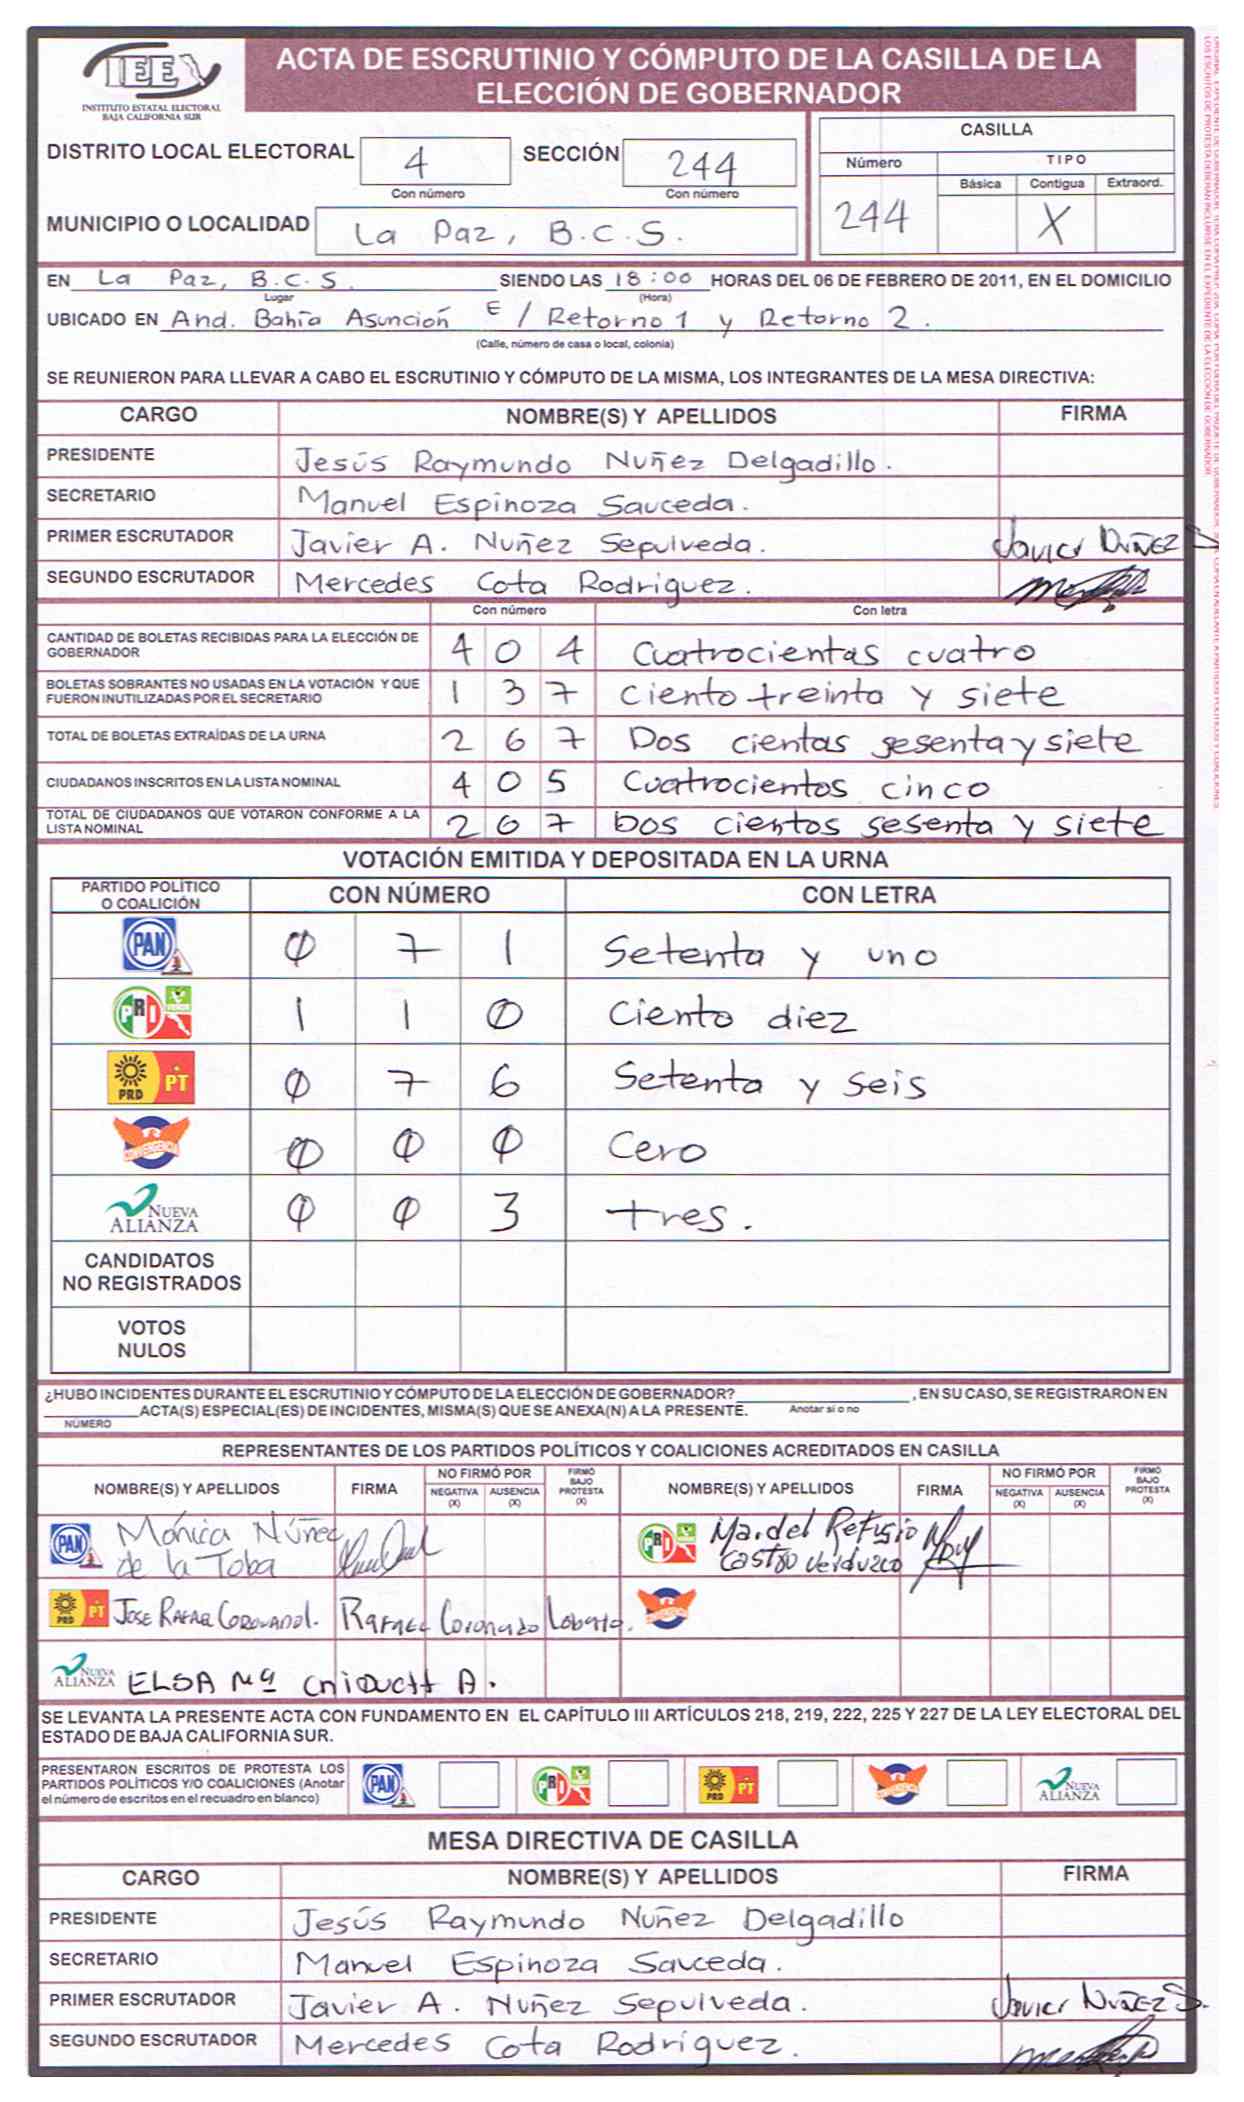 IEE
INSTITUTO ESTATAL ELECTORAL
BAJA CALIFORNIA SUR
ACTA DE ESCRUTINIO Y CÓMPUTO DE LA CASILLA DE LA
ELECCIÓN DE GOBERNADOR
DISTRITO LOCAL ELECTORAL 4 SECCIÓN 244
Con número Con número
MUNICIPIO O LOCALIDAD La Paz, B.C.S.
CASILLA
Número TIPO
Básica Contigua Extraord.
244 X
EN La Paz, B.C.S. SIENDO LAS 18:00 HORAS DEL 06 DE FEBRERO DE 2011, EN EL DOMICILIO
Lugar (Hora)
UBICADO EN And. Bahía Asunción E / Retorno 1 y Retorno 2.
(Calle, número de casa o local, colonia)
SE REUNIERON PARA LLEVAR A CABO EL ESCRUTINIO Y CÓMPUTO DE LA MISMA, LOS INTEGRANTES DE LA MESA DIRECTIVA:
CARGO NOMBRE(S) Y APELLIDOS FIRMA
PRESIDENTE Jesús Raymundo Nuñez Delgadillo.
SECRETARIO Manuel Espinoza Sauceda.
PRIMER ESCRUTADOR Javier A. Nuñez Sepulveda. Javier Nuñez S
SEGUNDO ESCRUTADOR Mercedes Cota Rodríguez.
Con número Con letra
CANTIDAD DE BOLETAS RECIBIDAS PARA LA ELECCIÓN DE
GOBERNADOR 4 0 4 Cuatrocientas cuatro
BOLETAS SOBRANTES NO USADAS EN LA VOTACIÓN Y QUE
FUERON INUTILIZADAS POR EL SECRETARIO 1 3 7 Ciento treinta y siete
TOTAL DE BOLETAS EXTRAÍDAS DE LA URNA 2 6 7 Dos cientas sesenta y siete
CIUDADANOS INSCRITOS EN LA LISTA NOMINAL 4 0 5 Cuatrocientos cinco
TOTAL DE CIUDADANOS QUE VOTARON CONFORME A LA
LISTA NOMINAL 2 6 7 Dos cientos sesenta y siete
VOTACIÓN EMITIDA Y DEPOSITADA EN LA URNA
PARTIDO POLÍTICO
O COALICIÓN CON NÚMERO CON LETRA
PAN 0 7 1 Setenta y uno
PRI VERDE 1 1 0 Ciento diez
PRD PT 0 7 6 Setenta y seis
CONVERGENCIA 0 0 0 Cero
NUEVA ALIANZA 0 0 3 tres.
CANDIDATOS
NO REGISTRADOS
VOTOS
NULOS
¿HUBO INCIDENTES DURANTE EL ESCRUTINIO Y CÓMPUTO DE LA ELECCIÓN DE GOBERNADOR? , EN SU CASO, SE REGISTRARON EN
ACTA(S) ESPECIAL(ES) DE INCIDENTES, MISMA(S) QUE SE ANEXA(N) A LA PRESENTE. Anotar si o no
NÚMERO
REPRESENTANTES DE LOS PARTIDOS POLÍTICOS Y COALICIONES ACREDITADOS EN CASILLA
NOMBRE(S) Y APELLIDOS FIRMA NO FIRMÓ POR NEGATIVA (X) AUSENCIA (X) FIRMÓ BAJO PROTESTA (X) NOMBRE(S) Y APELLIDOS FIRMA NO FIRMÓ POR NEGATIVA (X) AUSENCIA (X) FIRMÓ BAJO PROTESTA (X)
PAN Mónica Núñez
de la Toba
PRI Ma. del Refugio
Castro Verduzco
PRD PT Jose Rafael Coronado L. Rafael Coronado Lobato.
CONVERGENCIA
NUEVA ALIANZA ELSA Mª A.
SE LEVANTA LA PRESENTE ACTA CON FUNDAMENTO EN EL CAPÍTULO III ARTÍCULOS 218, 219, 222, 225 Y 227 DE LA LEY ELECTORAL DEL
ESTADO DE BAJA CALIFORNIA SUR.
PRESENTARON ESCRITOS DE PROTESTA LOS
PARTIDOS POLÍTICOS Y/O COALICIONES (Anotar
el número de escritos en el recuadro en blanco)
PAN PRI PRD PT CONVERGENCIA NUEVA ALIANZA
MESA DIRECTIVA DE CASILLA
CARGO NOMBRE(S) Y APELLIDOS FIRMA
PRESIDENTE Jesús Raymundo Nuñez Delgadillo
SECRETARIO Manuel Espinoza Sauceda.
PRIMER ESCRUTADOR Javier A. Nuñez Sepulveda. Javier Nuñez S.
SEGUNDO ESCRUTADOR Mercedes Cota Rodríguez.